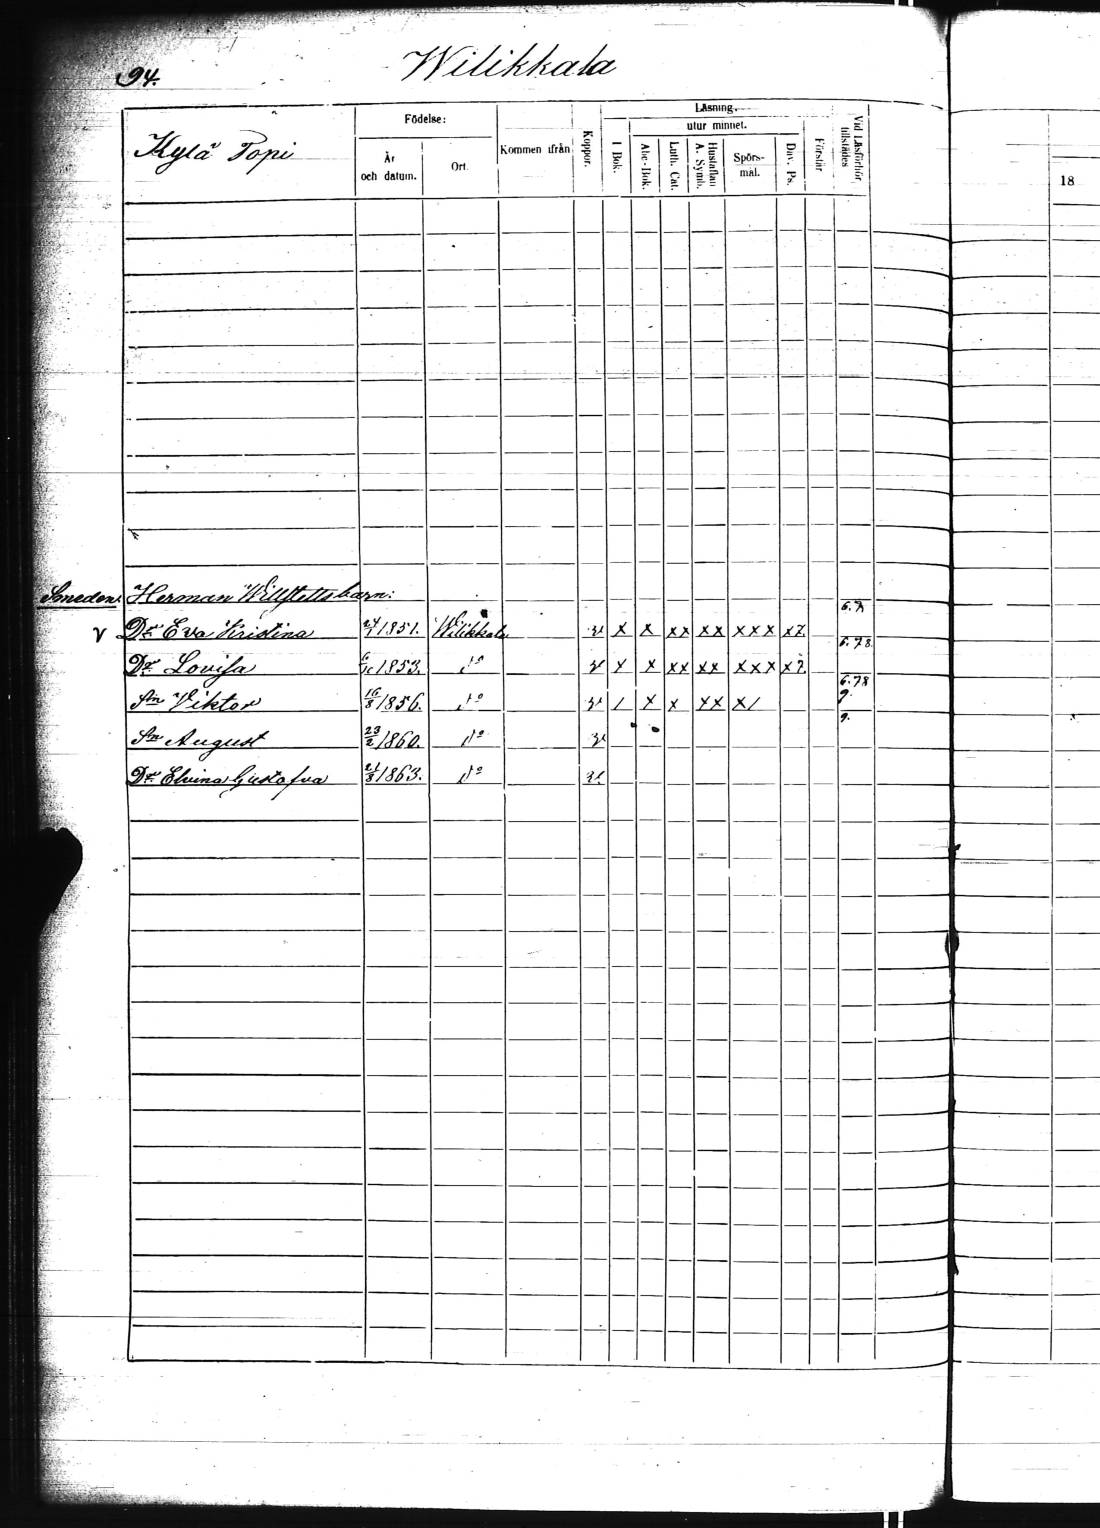 94.
Wilikkala
Kylä Topi
Födelse:
År och datum.
Ort.
Kommen ifrån
Koppor.
Läsning.
I Bok.
utur minnet.
Abc-Bok.
Luth. Cat.
Hustaflan A. Symb.
Spörs-mål.
Dav. Ps.
Förstår
Vid Läsförhör tillstädes
18
Smeden Herman Willstetts barn:
V Dr. Eva Kristina 24/7 1851. Wilikkala v x x xx xx xxx x7. 6.7
Dr. Lovisa 1853. do v x x xx xx xxx x7 6.78.
Sn Viktor 16/8 1856. do v / x x xx x/ 6.78 9.
Sn August 23/2 1860. do v 9.
Dr. Elvina Gustafva 21/8 1863. do v.